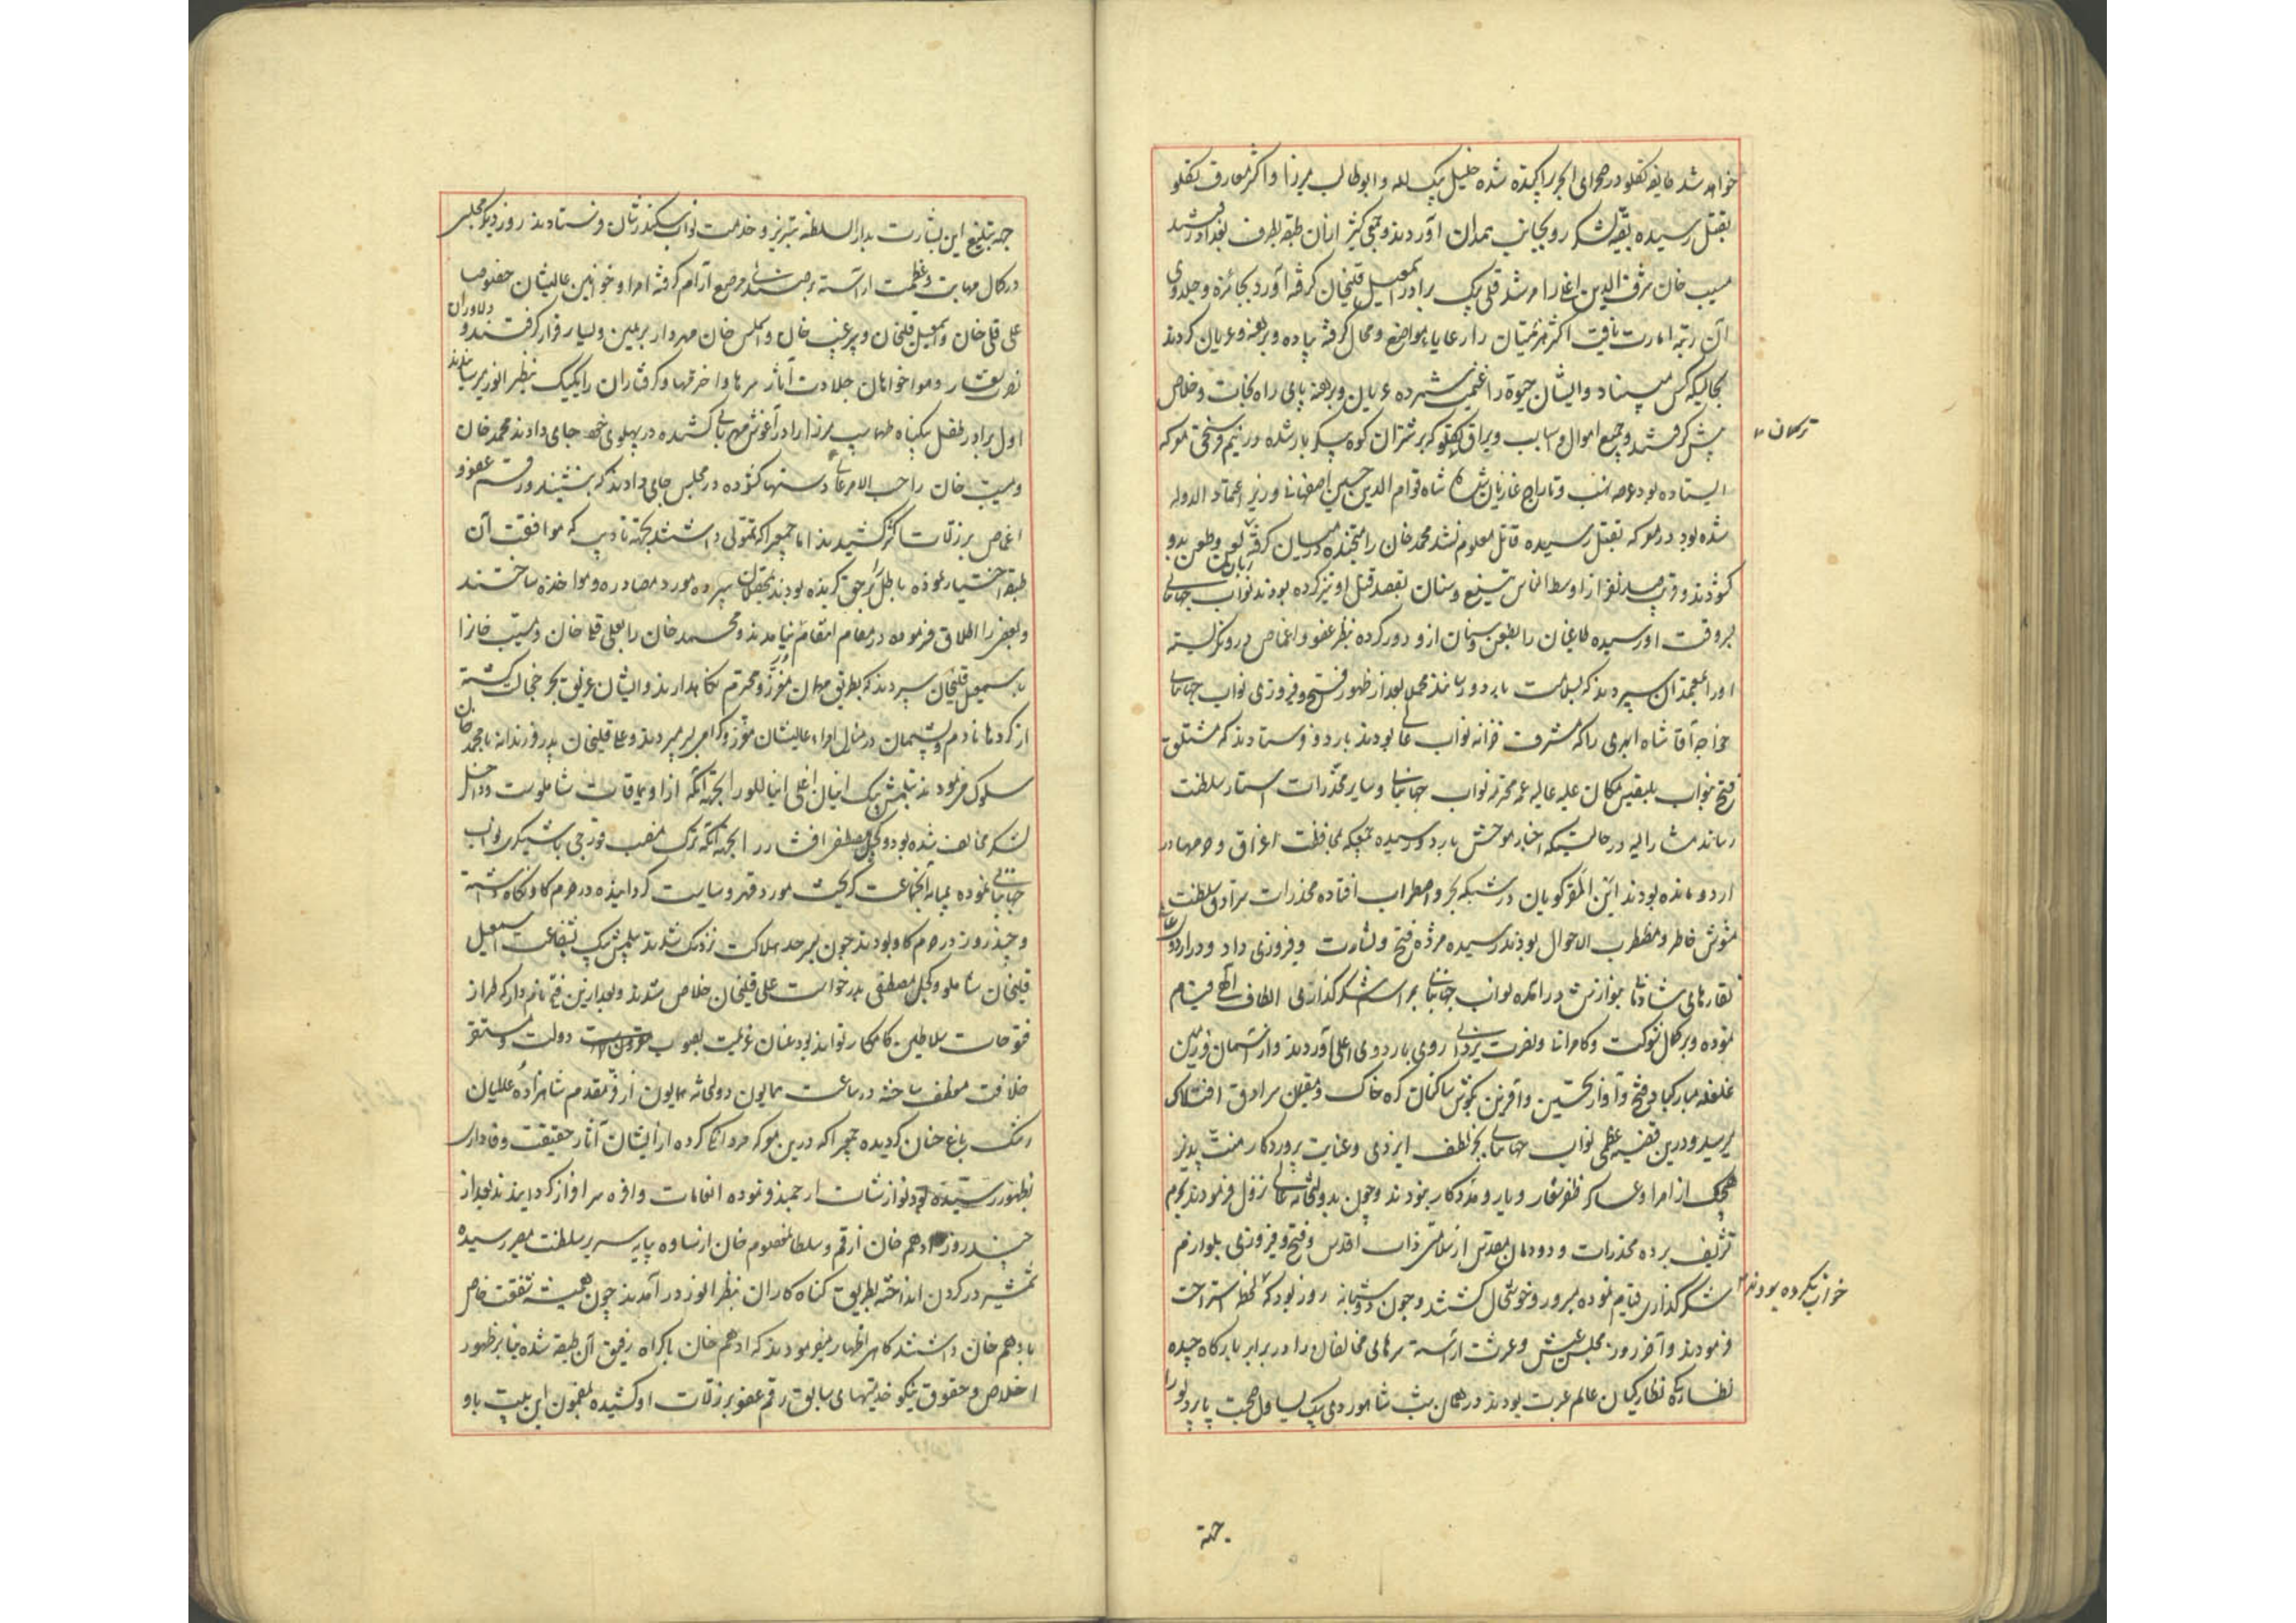 خواهد شد طایفه تکلو در صحرای ابهر پراکنده شده خلیل بیک لله و ابوطالب میرزا و اکثر معارف تکلو
بقتل رسیده بقیه لشکر رو بجانب همدان آوردند و جمعی کثیر از آن طبقه بطرف بغداد رفتند
مسیب خان شرف الدین اغلی را مرشد قلی بیک برادر اسمعیل قلیخان گرفته آورد بجایزه و جلدوی
آن رتبه امارت یافت اکثر هزیمتیان را رعایاء مواضع و محال گرفته پیاده و برهنه و عریان کردند
بحالیکه کس مبیناد و ایشان حیوة را غنیمت شمرده عریان و برهنه پای راه نجات و خلاص
ترکمان
پیش گرفتند و جمیع اموال و اسباب و یراق تکلو که بر شتران کوه پیکر بار شده در نیم فرسخی معرکه
ایستاده بود عرصه نهب و تاراج غازیان شد شاه قوام الدین حسین اصفهانی وزیر اعتماد الدوله
شده بود در معرکه بقتل رسیده قاتل معلوم نشد محمد خان را در میان گرفته زبان لعن و طعن بدو
گشودند و قریب صد نفر از اوسط الناس تیغ و سنان بقصد قتل او تیز کرده بودند نواب جهانبانی
بروقت او رسیده طاغیان را بطعن سنان ازو دور کرده بنظر عفو و اغماض درو نگریسته
او را بمعتمدان سپردند که بسلامت باردو رسانند مجملا بعد از ظهور فتح و فیروزی نواب جهانبانی
خواجه آقا شاه ابهری را که مشرف خزانه نواب عالی بودند باردو فرستادند که مشتلق
فتح بنواب بلقیس مکان علیه عالیه عمه محترمه نواب جهانبانی و سایر مخدرات استار سلطنت
رساند مشار الیه در حالتیکه اخبار موحش باردو رسیده جمعیکه بمحافظت اغرق و حرمها در
اردو مانده بودند این المفر گویان در شبکه بحر اضطراب افتاده مخدرات سرادق سلطنت
مشوش خاطر و مضطرب الاحوال بودند رسیده مژده فتح و بشارت و فیروزی داد و در اردوی عالی
نقارهای شادمانی بنوازش درآمده نواب جهانبانی بمراسم شکرگذاری الطاف الهی قیام
نموده و بر کمال شوکت و کامرانی و نصرت یزدانی روی باردوی اعلی آوردند و از آسمان و زمین
غلغله مبارکباد فتح و آواز تحسین و آفرین بگوش ساکنان کره خاک و مقیمان سرادق افلاک
میرسید و درین قضیه عظمی نواب جهانبانی بجز لطف ایزدی و عنایت پروردگار منت پذیر
هیچیک از امرا و عساکر ظفر شعار و یار و مددکار نبودند و چون بدولتخانه عالی نزول فرمودند بحرم
تشریف برده مخدرات و دودمان مقدس از سلامتی ذات اقدس و فتح و فیروزی بلوازم
شکرگذاری قیام نموده مسرور و خوشحال گشتند و چون دو شبانه روز بود که لحظه استراحت
خواب نکرده بودند
فرمودند و آخر روز مجلس عیش و عشرت آراسته سرهای مخالفان را در برابر بارگاه چیده
نظارگیان عالم عبرت بودند در همان شب شاهوردی بیک یساول صحبت پابردلو را
جهة
جهه تبلیغ این بشارت بدار السلطنه تبریز و خدمت نواب سکندر شان فرستادند روز دیگر مجلس
در کمال مهابت و عظمت آراسته بر مسند مرصع آرام گرفته امرا و خوانین عالیشان خصوصا
علی قلی خان و اسمعیل قلیخان و پیر غیب خان و المس خان مهردار بر یمین و یسار قرار گرفتند و دلاوران
نصرت شعار و هواخواهان جلادت آثار سرها و اخرمها و گرفتاران را یکیک بنظر انور میرسانیدند
اول برادر طفل بیگناه طهماسب میرزا را در آغوش مهربانی کشیده در پهلوی خود جای دادند محمد خان
و مسیب خان را حسب الامر عالی دستها گشوده در مجلس جای دادند که بنشینند و رقم عفو و
اغماض بر زلات اکثر کشیدند اما جمعیرا که تمولی داشتند بجهة تادیب که موافقت آن
طبقه اختیار نموده باطل را بر حق گزیده بودند بمحصلان سپرده مورد مصادره و مواخذه ساختند
و بعضی را اطلاق فرموده در مقام انتقام نیامدند و محمد خان را بعلی قلی خان و مسیب خانرا
باسمعیل قلیخان سپردند که بطریق مهمان معزز و محترم نگاهدارند و ایشان غریق بحر خجالت گشته
از کردها نادم و پشیمان در منازل امراء عالیشان معزز و مکرم بسر میبردند و علی قلیخان پدر فرزندانه با محمد خان
سلوک فرمودند تیلمش بیک اینانلو را بجهة آنکه از اویماقات شاملوست و داخل
لشکر مخالف شده بود و کچل مصطفی افشار را بجهة آنکه ترک منصب قورچی باشیگری نواب
جهانبانی نموده بمیانه آنجماعت گریخت مورد قهر و سیاست گردانیده در خرم گاو نگاه داشته
و چند روز در چرم گاو بودند چون بسرحد هلاکت نزدیک شدند تیلمش بیک بشفاعت اسمعیل
قلیخان شاملو و کچل مصطفی بدرخواست علی قلیخان خلاص شدند و بعد ازین فتح نامدار که طراز
فتوحات سلاطین کامکار تواند بود عنان عزیمت بصوب دولت و مستقر
خلافت معطف ساخته در ساعت همایون دولتخانه همایون از فر مقدم شاهزاده عالمیان
رشک باغ جنان گردیده جمعیرا که درین معرکه مردانگی کرده از ایشان آثار حقیقت و وفاداری
بظهور رسیده بود نوازشات ارجمند نموده انعامات وافره سرافراز گردانیدند بعد از
چند روز ادهم خان از قم و سلطان معصوم خان از ساوه بپایه سریر سلطنت مصیر رسیده
شمشیر در گردن انداخته بطریق گناه کاران بنظر انور درآمدند چون همیشه شفقت خاص
بادهم خان داشتند گاهی اظهار میفرمودند که ادهم خان باکراه رفیق آن طبقه شده بنابر ظهور
اخلاص و حقوق نیکو خدمتیهای سابق رقم عفو بر زلات او کشیده بمضمون این بیت باو